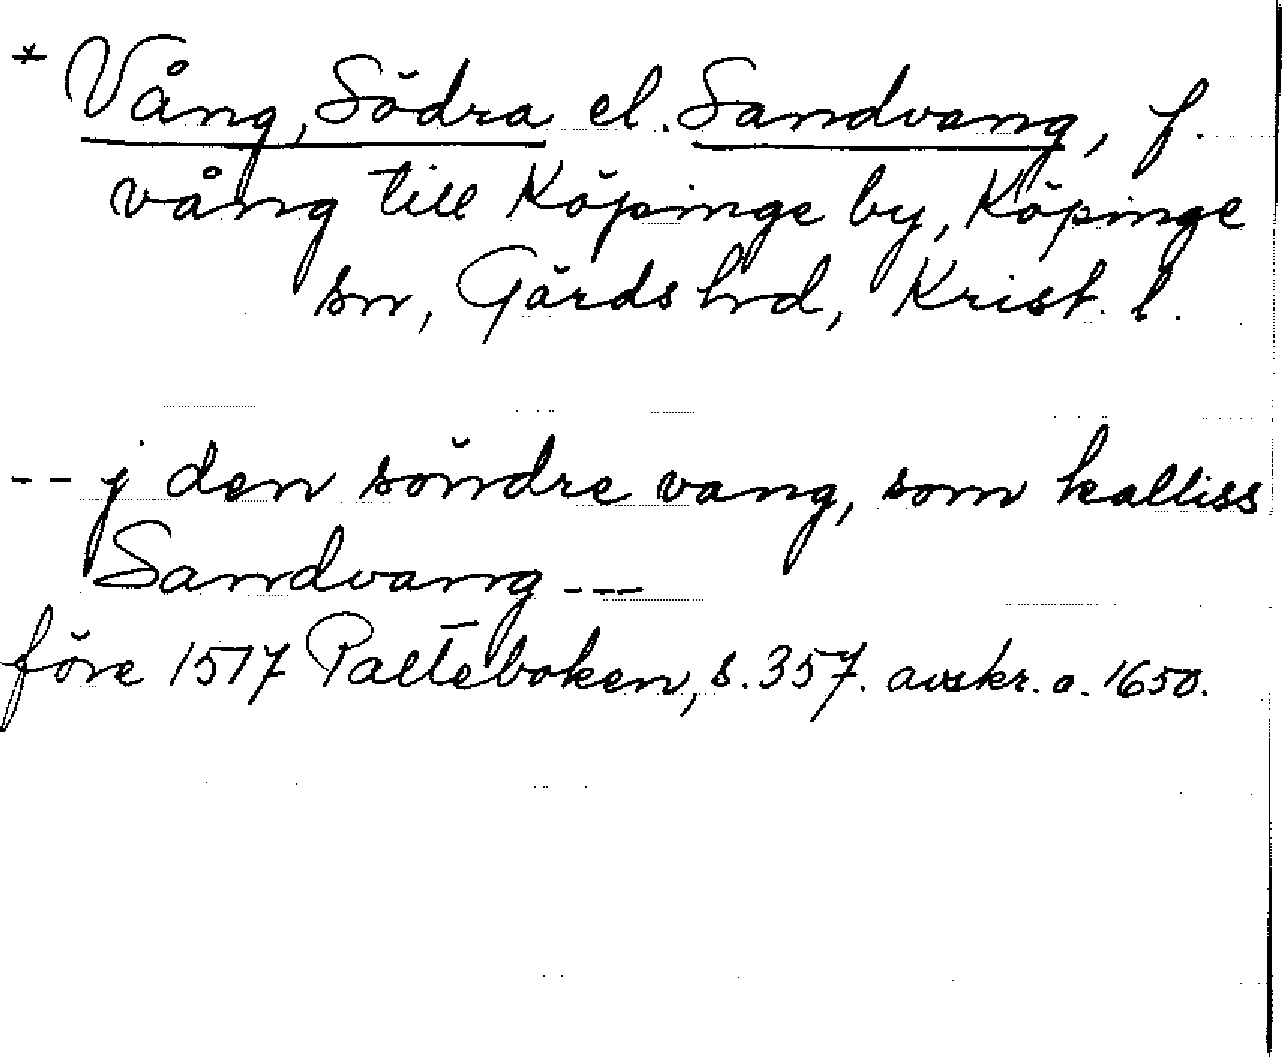 * Vång, Södra el. Sandvang, f.
vång till Köpinge by, Köpinge
sn, Gärds hd, Krist. l.
-- j den söndre vang, som kalliss
Sandvang ---
före 1517 Palteboken, s. 357. avskr. o. 1650.